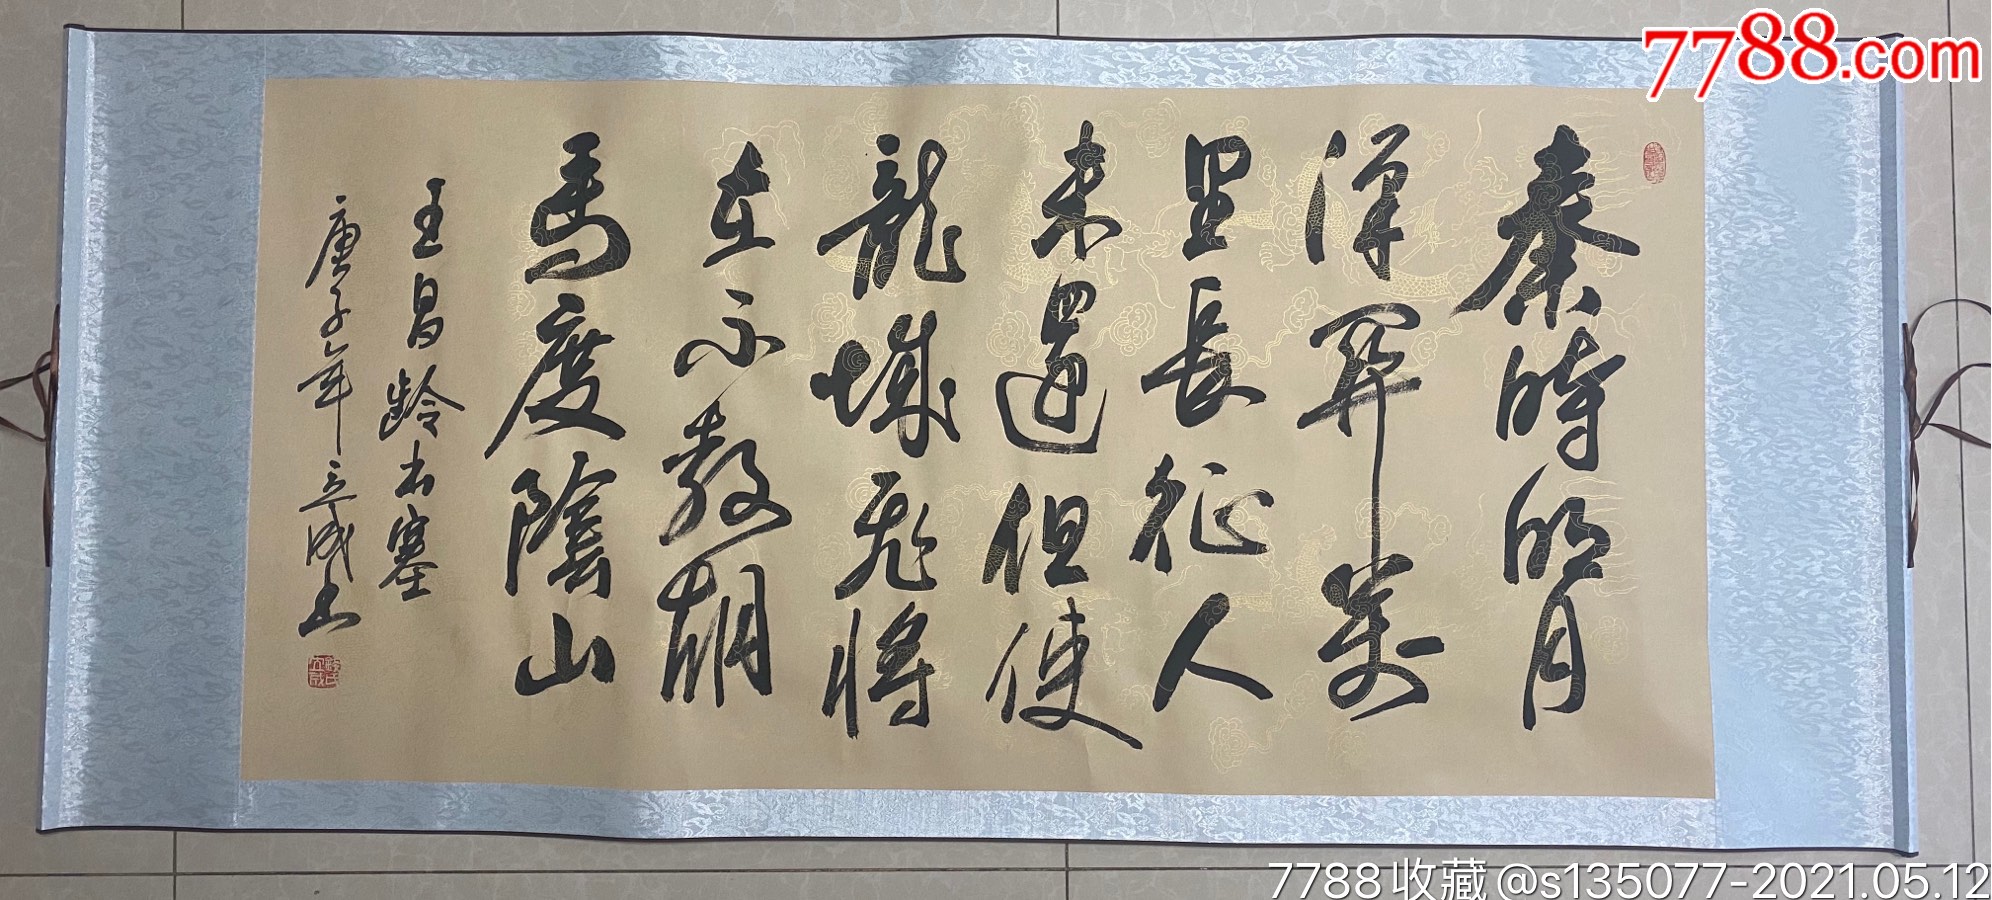 秦時明月
漢關萬
里長征人
未還但使
龍城飛將
在不教胡
馬度陰山
王昌齡出塞
庚子年立成書
7788.com
7788收藏@s135077-2021.05.12